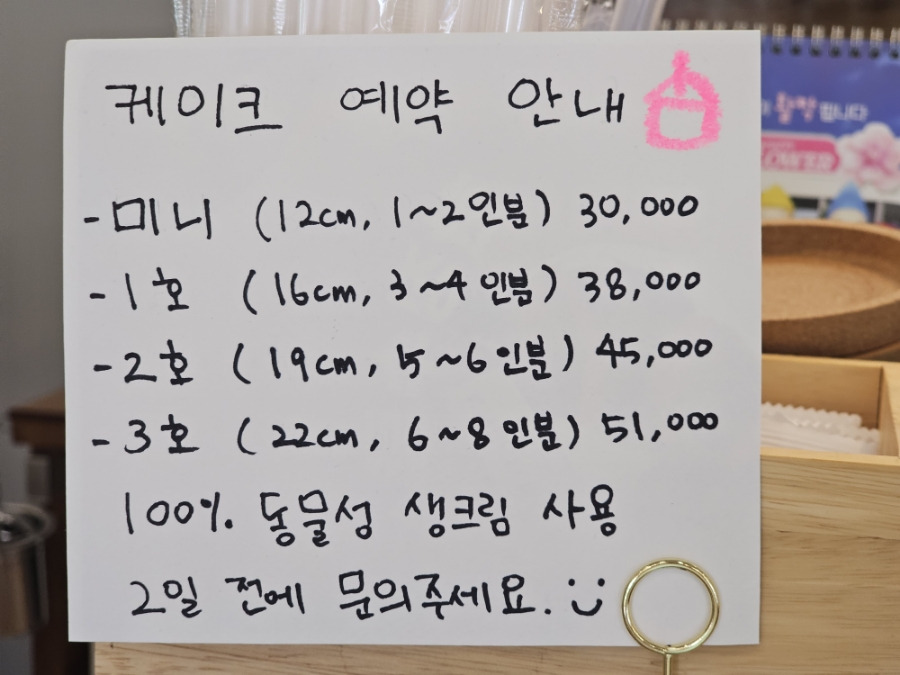 케이크 예약 안내
- 미니 (12cm, 1~2인분) 30,000
- 1호 (16cm, 3~4인분) 38,000
- 2호 (19cm, 5~6인분) 45,000
- 3호 (22cm, 6~8인분) 51,000
100% 동물성 생크림 사용
2일 전에 문의주세요. :)